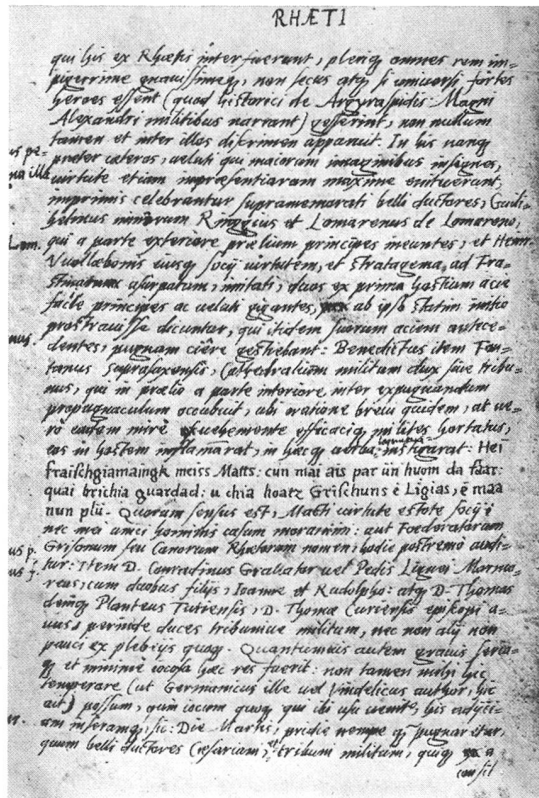 RHÆTI
qui his ex Rhætis interfuerant, pleriq omnes rem im-
pigerrime gnauissimeq, non secus atq si uniuersi fortes
heroes essent (quod historici de Argyraspidis Magni
Alexandri militibus narrant) gesserint, non nullum
tamen et inter illos discrimen apparuit. In his nanq
præter cæteros, ueluti qui maiorum imaginibus insignes,
uirtute etiam impræsentiarum maxime enituerunt,
imprimis celebrantur supramemorati belli ductores, Guili-
helmus Ringgius et Lomarenus de Lomareno,
Lom.
qui a parte exteriore prælium principes ineuntes, et Henr.
Vuollæbonis eiusq socij uirtutem, et stratagema, ad Fra-
stinatum usurpatum, imitati, duos ex prima hostium acie
facile principes ac ueluti gigantes, ab ipso statim initio
prostrauisse dicuntur, qui itidem suorum aciem antece-
nus.
dentes, pugnam ciêre gestiebant: Benedictus item Fon-
tanus supraxaxensis, Cathedralium militum dux siue tribu-
nus, qui in prælio a parte interiore inter expugnandum
propugnaculum occubuit, ubi oratione breui quidem, at ue-
rò eadem mirè uehemente efficaciq milites hortatus,
eos in hostem inflammarat, in hæcq uerba instigarat: Hei
fraischgiamaingk meiss Matts: cun mai ais par ün huom da faar:
quai brichia guardad: u chia hoatz Grischuns è Ligias, è maa
nun plü. Quorum sensus est, Macti uirtute estote socij:
nec mei unici hominis casum moramini: aut Foederatorum
us p.
Grisonum seu Canorum Rhætorum nomen hodie postremò audi-
us f.
tur: Item D. Conradinus Graliatur uel Pedis Lignei Marmo-
reas, cum duobus filijs, Ioanne et Rudolpho: atq D. Thomas
deniq Planteus Turiensis, D. Thomæ Curiensis episcopi a-
uus, perinde duces tribuniue militum, nec non alij non
pauci ex plebeijs quoq. Quantumuis autem grauis seria-
q et minimè iocosa hæc res fuerit: non tamen mihi hic
temperare (ut Germanicus ille uel Vindelicus author, hic
aut) possum, quin iocum quoq qui ibi usu uenit, his adijci-
am inseramq, sic: Die Martis, pridie nempe q pugnaretur,
quum belli ductores Cæsariani, et tribuni militum, quiq a
consil